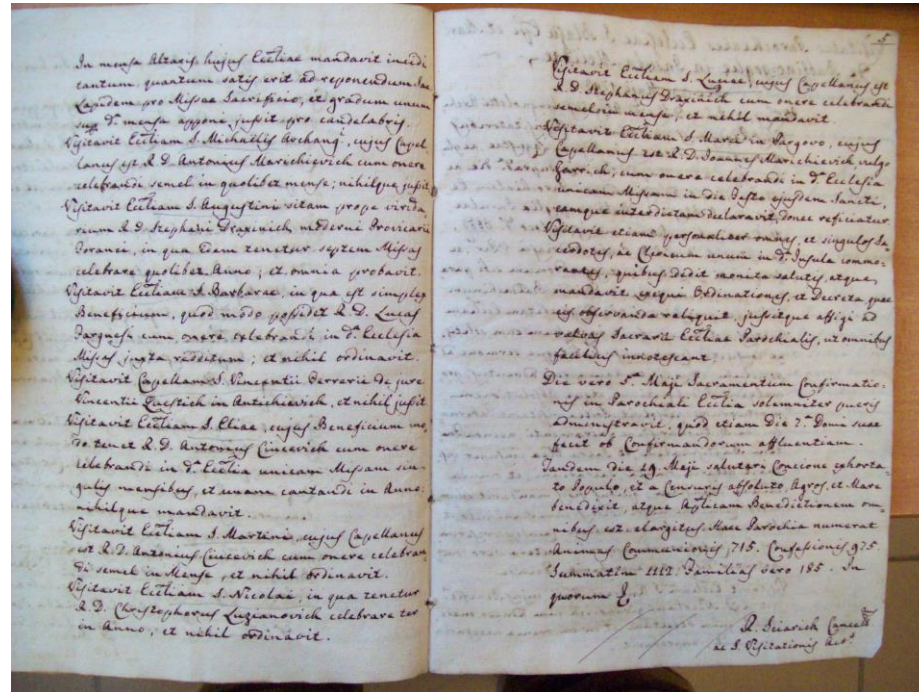 In mensa Altaris hujus Eccliae mandavit incidi
tantum, quantum satis erit ad reponendum Sac
Lapidem pro Missae Sacrificio, et gradum unum
supr dª mensa apponi jussit pro candelabris.
Visitavit Eccliam S. Michaelis Archangi, cujus Capel
lanus est R. D. Antonius Marichievich cum onere
celebrandi semel in quolibet mense; nihilque jussit.
Visitavit Eccliam S. Augustini sitam prope virida,
rium R. D. Stephani Draxinich moderni Provicarii
Foranei, in qua idem tenetur septem Missas
celebrare quolibet Anno; et omnia probavit.
Visitavit Eccliam S. Barbarae, in qua est simplex
Beneficium, quod modo possidet R. D. Lucas
cum onere celebrandi in dª Ecclesia
Missas juxta redditum; et nihil ordinavit.
Visitavit Capellam S. Vincentii Ferrerii de jure
Vincentii in Antichievich, et nihil jussit
Visitavit Eccliam S. Eliae, cujus Beneficium mo,
do tenet R. D. Antonius Cincevich cum onere
celebrandi in dª Ecclia unicam Missam sin
gulis mensibus, et unam cantandi in Anno:
nihilque mandavit.
Visitavit Eccliam S. Martini, cujus Capellanus
est R. D. Antonius Cincevich cum onere celebran
di semel in Mense, et nihil ordinavit.
Visitavit Eccliam S. Nicolai, in qua tenetur
R. D. Christophorus Luzianovich celebrare ter
in Anno, et nihil ordinavit.
5
Visitavit Eccliam S. Luciae, cujus Capellanus est
R. D. Stephanus Draxinich cum onere celebrandi
semel in mense, et nihil mandavit.
Visitavit Eccliam S. Marci in Pargovo, cujus
Capellanus est R. D. Joannes Marichievich vulgo
cum onere celebrandi in dª Ecclesia
unicam Missam in die Festo ejusdem Sancti,
eamque interdictam declaravit, donec reficiatur
Visitavit etiam personaliter omnes, et singulos Sa,
cerdotes, ac Clericum unum in dª Insula commo,
rantes, quibus dedit monita salutis, atque
mandavit exequi Ordinationes, et Decreta, quae
eis observanda reliquit, jussitque affigi ad
valvas Sacrarii Eccliae Parochialis, ut omnibus
facilius innotescant.
Die vero 5ª Maji Sacramentum Confirmatio,
nis in Parochiali Ecclia solemniter pueris
administravit, quod etiam die 7ª Domi suae
fecit ob Confirmandorum affluentiam.
Tandem die 29 Maji salutari Concione exhorta,
to Populo, et a Censuris absoluto, Agros, et Mare
benedixit, atque Aplicam Benedictionem om,
nibus est elargitus. Haec Parochia numerat
Animas Communionis 715. Confessionis 975.
Summatim 1112. Familias vero 185. In
quorum
Cancells
ac S. Visitationis Acts